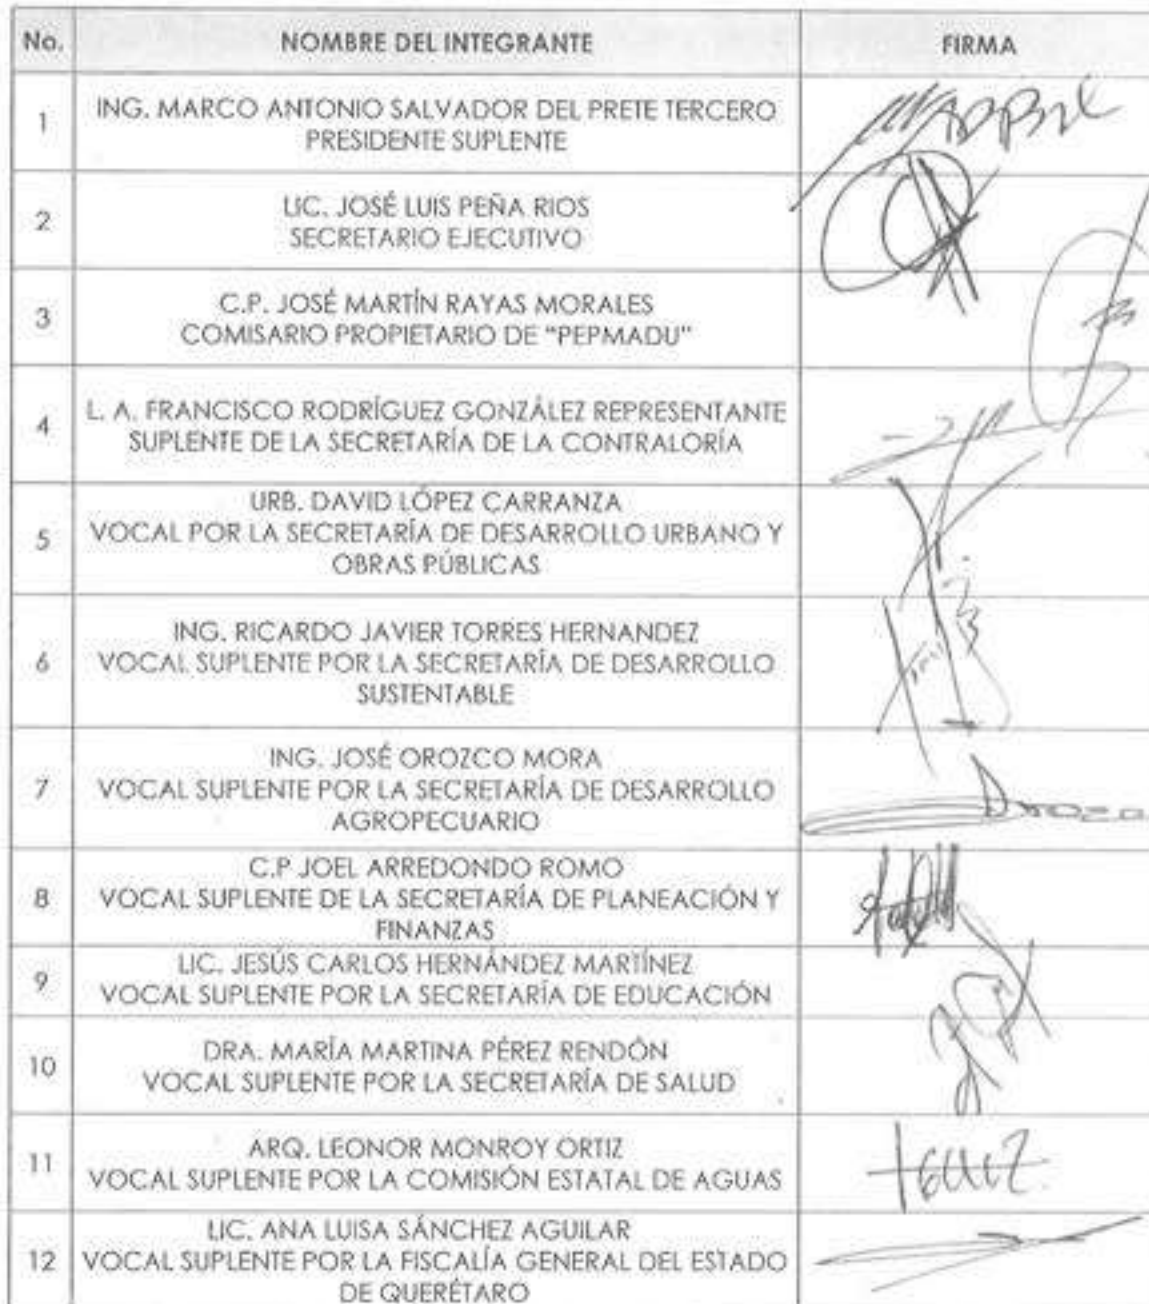 No. NOMBRE DEL INTEGRANTE FIRMA
1 ING. MARCO ANTONIO SALVADOR DEL PRETE TERCERO
PRESIDENTE SUPLENTE
2 LIC. JOSÉ LUIS PEÑA RIOS
SECRETARIO EJECUTIVO
3 C.P. JOSÉ MARTÍN RAYAS MORALES
COMISARIO PROPIETARIO DE "PEPMADU"
4 L. A. FRANCISCO RODRÍGUEZ GONZÁLEZ REPRESENTANTE
SUPLENTE DE LA SECRETARÍA DE LA CONTRALORÍA
5 URB. DAVID LÓPEZ CARRANZA
VOCAL POR LA SECRETARÍA DE DESARROLLO URBANO Y
OBRAS PÚBLICAS
6 ING. RICARDO JAVIER TORRES HERNANDEZ
VOCAL SUPLENTE POR LA SECRETARÍA DE DESARROLLO
SUSTENTABLE
7 ING. JOSÉ OROZCO MORA
VOCAL SUPLENTE POR LA SECRETARÍA DE DESARROLLO
AGROPECUARIO
8 C.P JOEL ARREDONDO ROMO
VOCAL SUPLENTE DE LA SECRETARÍA DE PLANEACIÓN Y
FINANZAS
9 LIC. JESÚS CARLOS HERNÁNDEZ MARTÍNEZ
VOCAL SUPLENTE POR LA SECRETARÍA DE EDUCACIÓN
10 DRA. MARÍA MARTINA PÉREZ RENDÓN
VOCAL SUPLENTE POR LA SECRETARÍA DE SALUD
11 ARQ. LEONOR MONROY ORTIZ
VOCAL SUPLENTE POR LA COMISIÓN ESTATAL DE AGUAS
12 LIC. ANA LUISA SÁNCHEZ AGUILAR
VOCAL SUPLENTE POR LA FISCALÍA GENERAL DEL ESTADO
DE QUERÉTARO